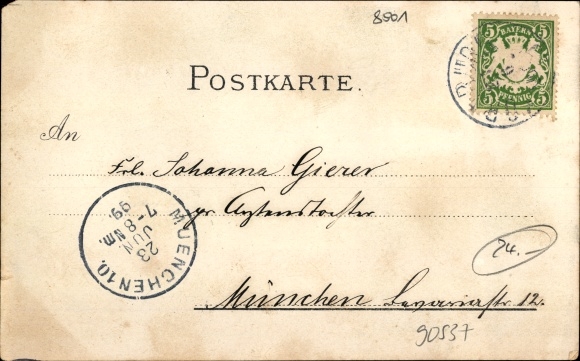 8501
5 BAYERN 5
5 PFENNIG 5
POSTKARTE.
An
Frl. Johanna Gierer
Arztenstochter
MUENCHEN 10.
23
JUN
7-8 Nm.
99.
24.-
München Bavariastr. 12.
90537